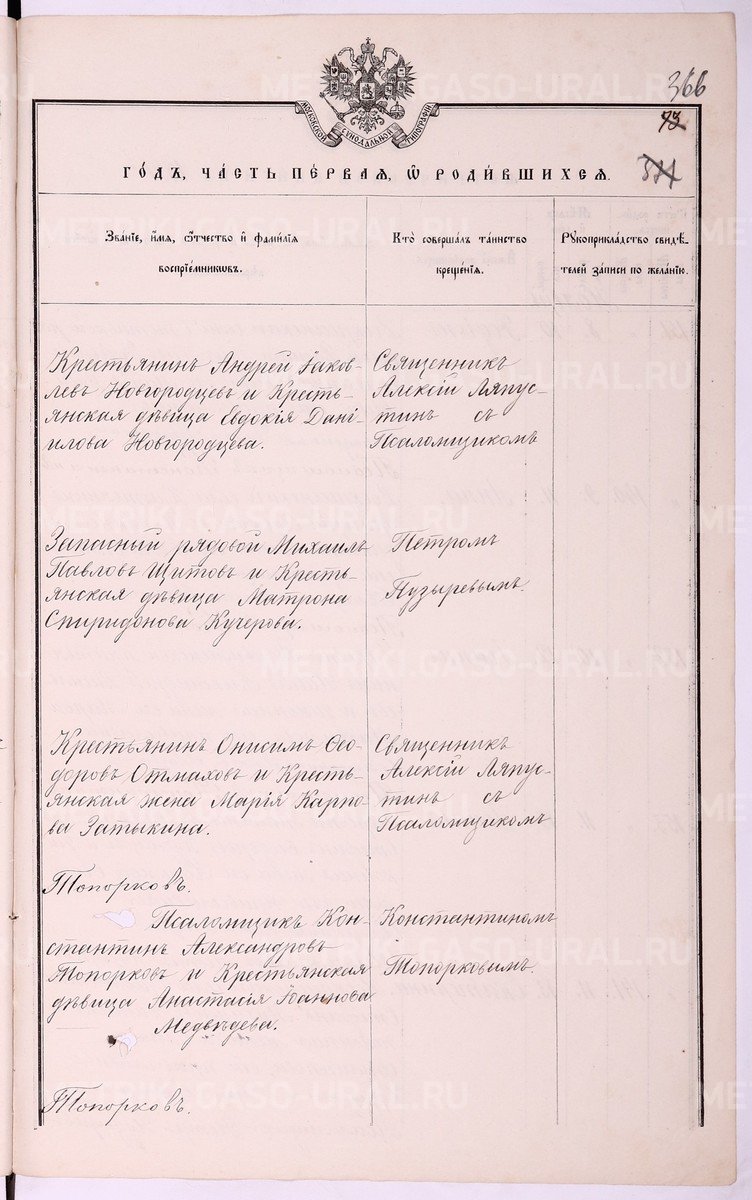 366
73
МОСКОВСКОЙ СѴНОДАЛЬНОЙ ТИПОГРАФІИ
ГО́ДЪ, ЧА́СТЬ ПЕ́РВАЯ, Ѿ РОДИ́ВШИХСЯ.
Зва́нїе, и҆́мя, ѻ҆́тчество и҆ фами́лїя
воспрїе́мникѡвъ.
Кто̀ соверша́лъ та́инство
креще́нїя.
Рꙋкоприкла́дство свидѣ́-
телей за́писи по жела́нїю.
Крестьянинъ Андрей Іаков-
левъ Новгородцевъ и Кресть-
янская дѣвица Евдокія Дані-
илова Новгородцева.
Священникъ
Алексій Ляпус-
тинъ съ
Псаломщикомъ
Запасный рядовой Михаилъ
Павловъ Щитовъ и Кресть-
янская дѣвица Матрона
Спиридонова Кучерова.
Петромъ
Пузыревымъ.
Крестьянинъ Онисимъ Ѳео-
доровъ Отмаховъ и Кресть-
янская жена Марія Карпо-
ва Затыкина.
Священникъ
Алексій Ляпус-
тинъ съ
Псаломщикомъ
Топорковъ.
Псаломщикъ Кон-
стантинъ Александровъ
Топорковъ и Крестьянская
дѣвица Анастасія Іоаннова
Медвѣдева.
Константиномъ
Топорковымъ.
Топорковъ.
METRIKI.GASO-URAL.RU